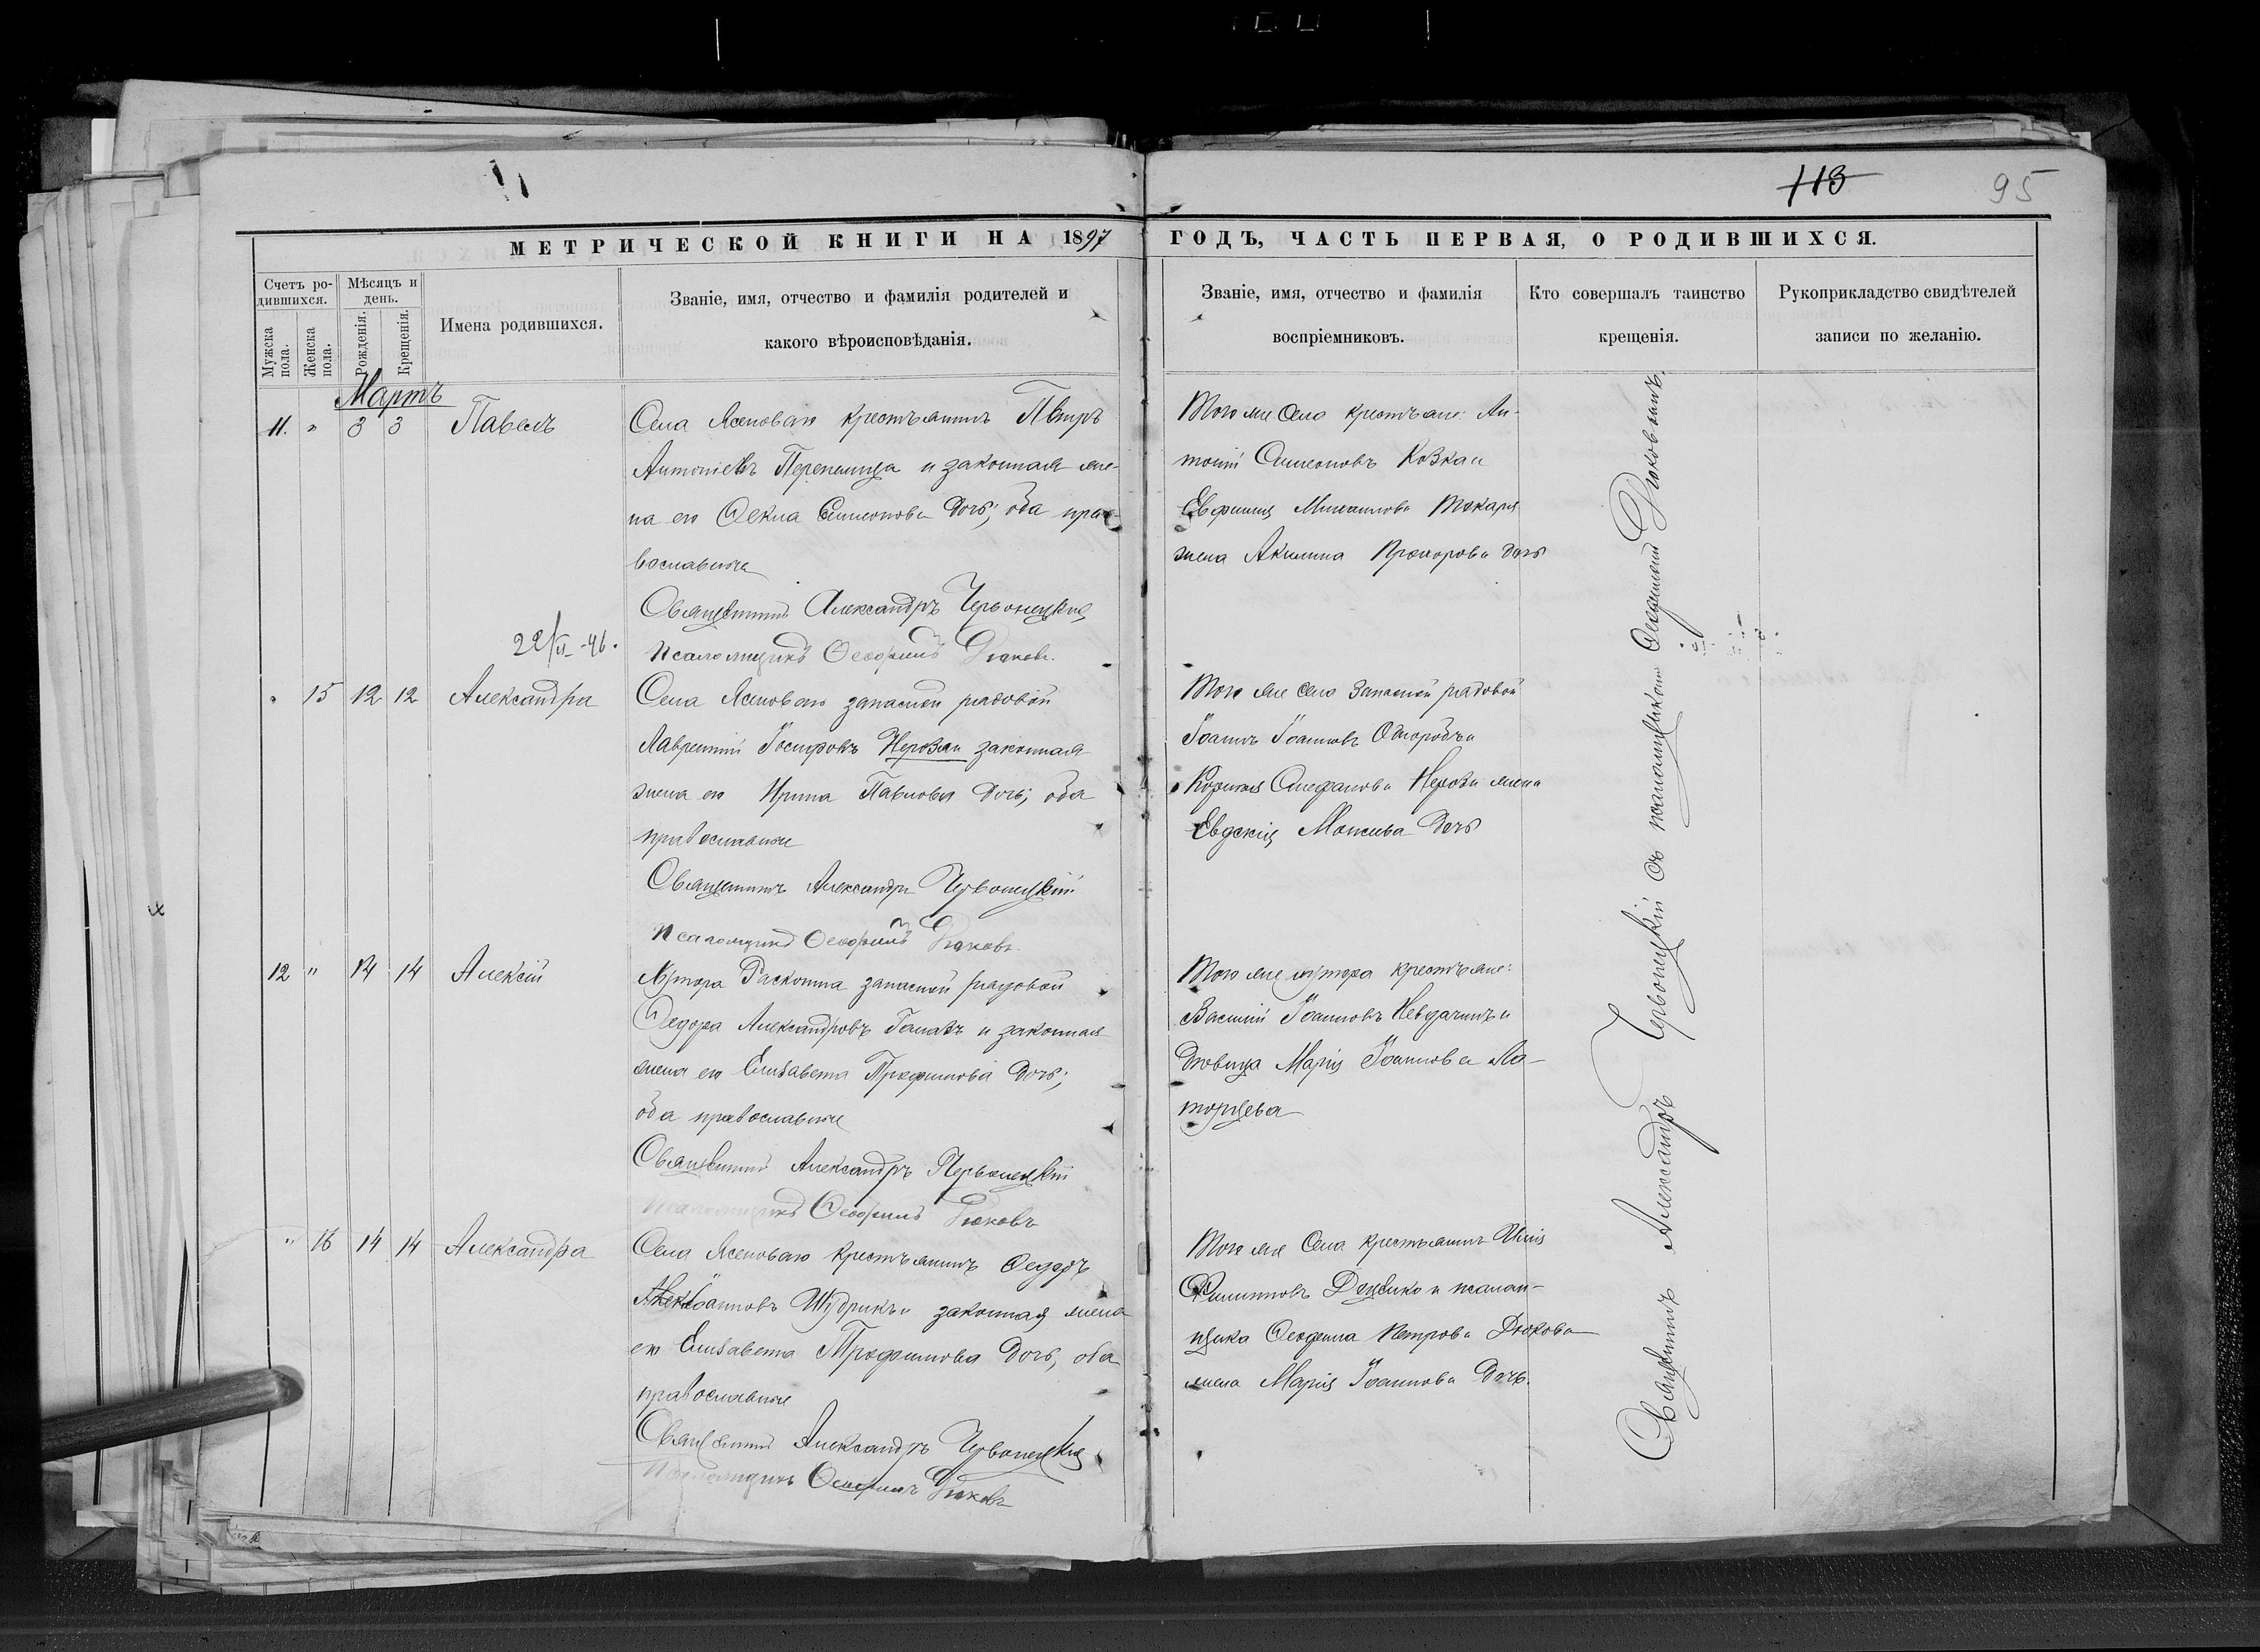 113 95
МЕТРИЧЕСКОЙ КНИГИ НА 1897
ГОДЪ, ЧАСТЬ ПЕРВАЯ, О РОДИВШИХСЯ.
Счетъ ро-
дившихся.
Мужска
пола.
Женска
пола.
Мѣсяцъ и
день.
Рожденія.
Крещенія.
Имена родившихся.
Званіе, имя, отчество и фамилія родителей и
какого вѣроисповѣданія.
Званіе, имя, отчество и фамилія
воспріемниковъ.
Кто совершалъ таинство
крещенія.
Рукоприкладство свидѣтелей
записи по желанію.
Мартъ
11. " 3 3 Павелъ
Села Ясеноваго крестьянинъ Петръ
Антоніевъ Перепелица и законная же-
на его Ѳекла Симеонова дочь; оба пра-
вославные
Священникъ Александръ Червонецкій
Псаломщикъ Ѳеофилъ Дюковъ.
Того же села крестьяне: Ан-
тоній Симеоновъ Козка и
Евфимія Михаилова Токаря
жена Акилина Прохорова дочь
22/VI-46.
" 15 12 12 Александра
Села Ясеноваго запасной рядовой
Лаврентій Іосифовъ законная
жена его Ирина Павлова дочь; оба
православные
Священникъ Александръ Червонецкій
Псаломщикъ Ѳеофилъ Дюковъ.
Того же села запасной рядовой
Іоаннъ Іоанновъ и
Стефанова жена
Евдокія дочь
12 " 14 14 Алексій
Хутора Раскопана запасной рядовой
Ѳедора Александровъ и законная
жена его Елисавета Трофимова дочь;
оба православные
Священникъ Александръ Червонецкій
Псаломщикъ Ѳеофилъ Дюковъ
Того же хутора крестьяне:
Василій Іоанновъ Невдачинъ и
дѣвица Марія Іоаннова Ла-
торцева
" 16 14 14 Александра
Села Ясеноваго крестьянинъ Ѳедоръ
Іоанновъ Шудрикъ и законная жена
его Елисавета Трофимова дочь, оба
православные
Священникъ Александръ Червонецкій
Псаломщикъ Ѳеофилъ Дюковъ
Того же села крестьянинъ
Филипповъ Доценко и псалом-
щика Ѳеофила Петрова Дюкова
жена Марія Іоаннова дочь.
Священникъ Александръ Червонецкій съ псаломщикомъ Ѳеофиломъ Дюковымъ.